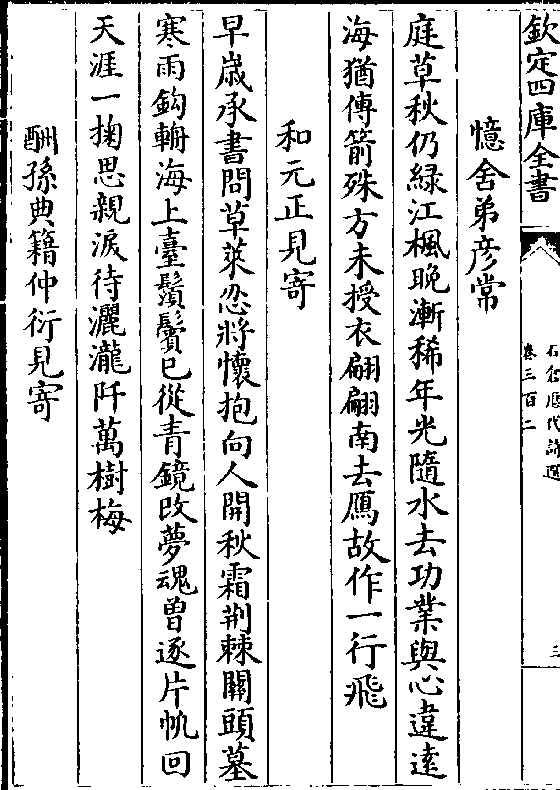 欽定四庫全書
石倉歷代詩選
卷三百二
三
憶舍弟彦常
庭草秋仍緑江楓晚漸稀年光隨水去功業與心違逺
海猶傳箭殊方未授衣翩翩南去鴈故作一行飛
和元正見寄
早嵗承書問草萊忽將懷抱向人開秋霜荆棘關頭墓
寒雨鈎輈海上臺鬚鬢已從青鏡改夢魂曽逐片帆回
天涯一掬思親淚待灑瀧阡萬樹梅
酬孫典籍仲衍見寄